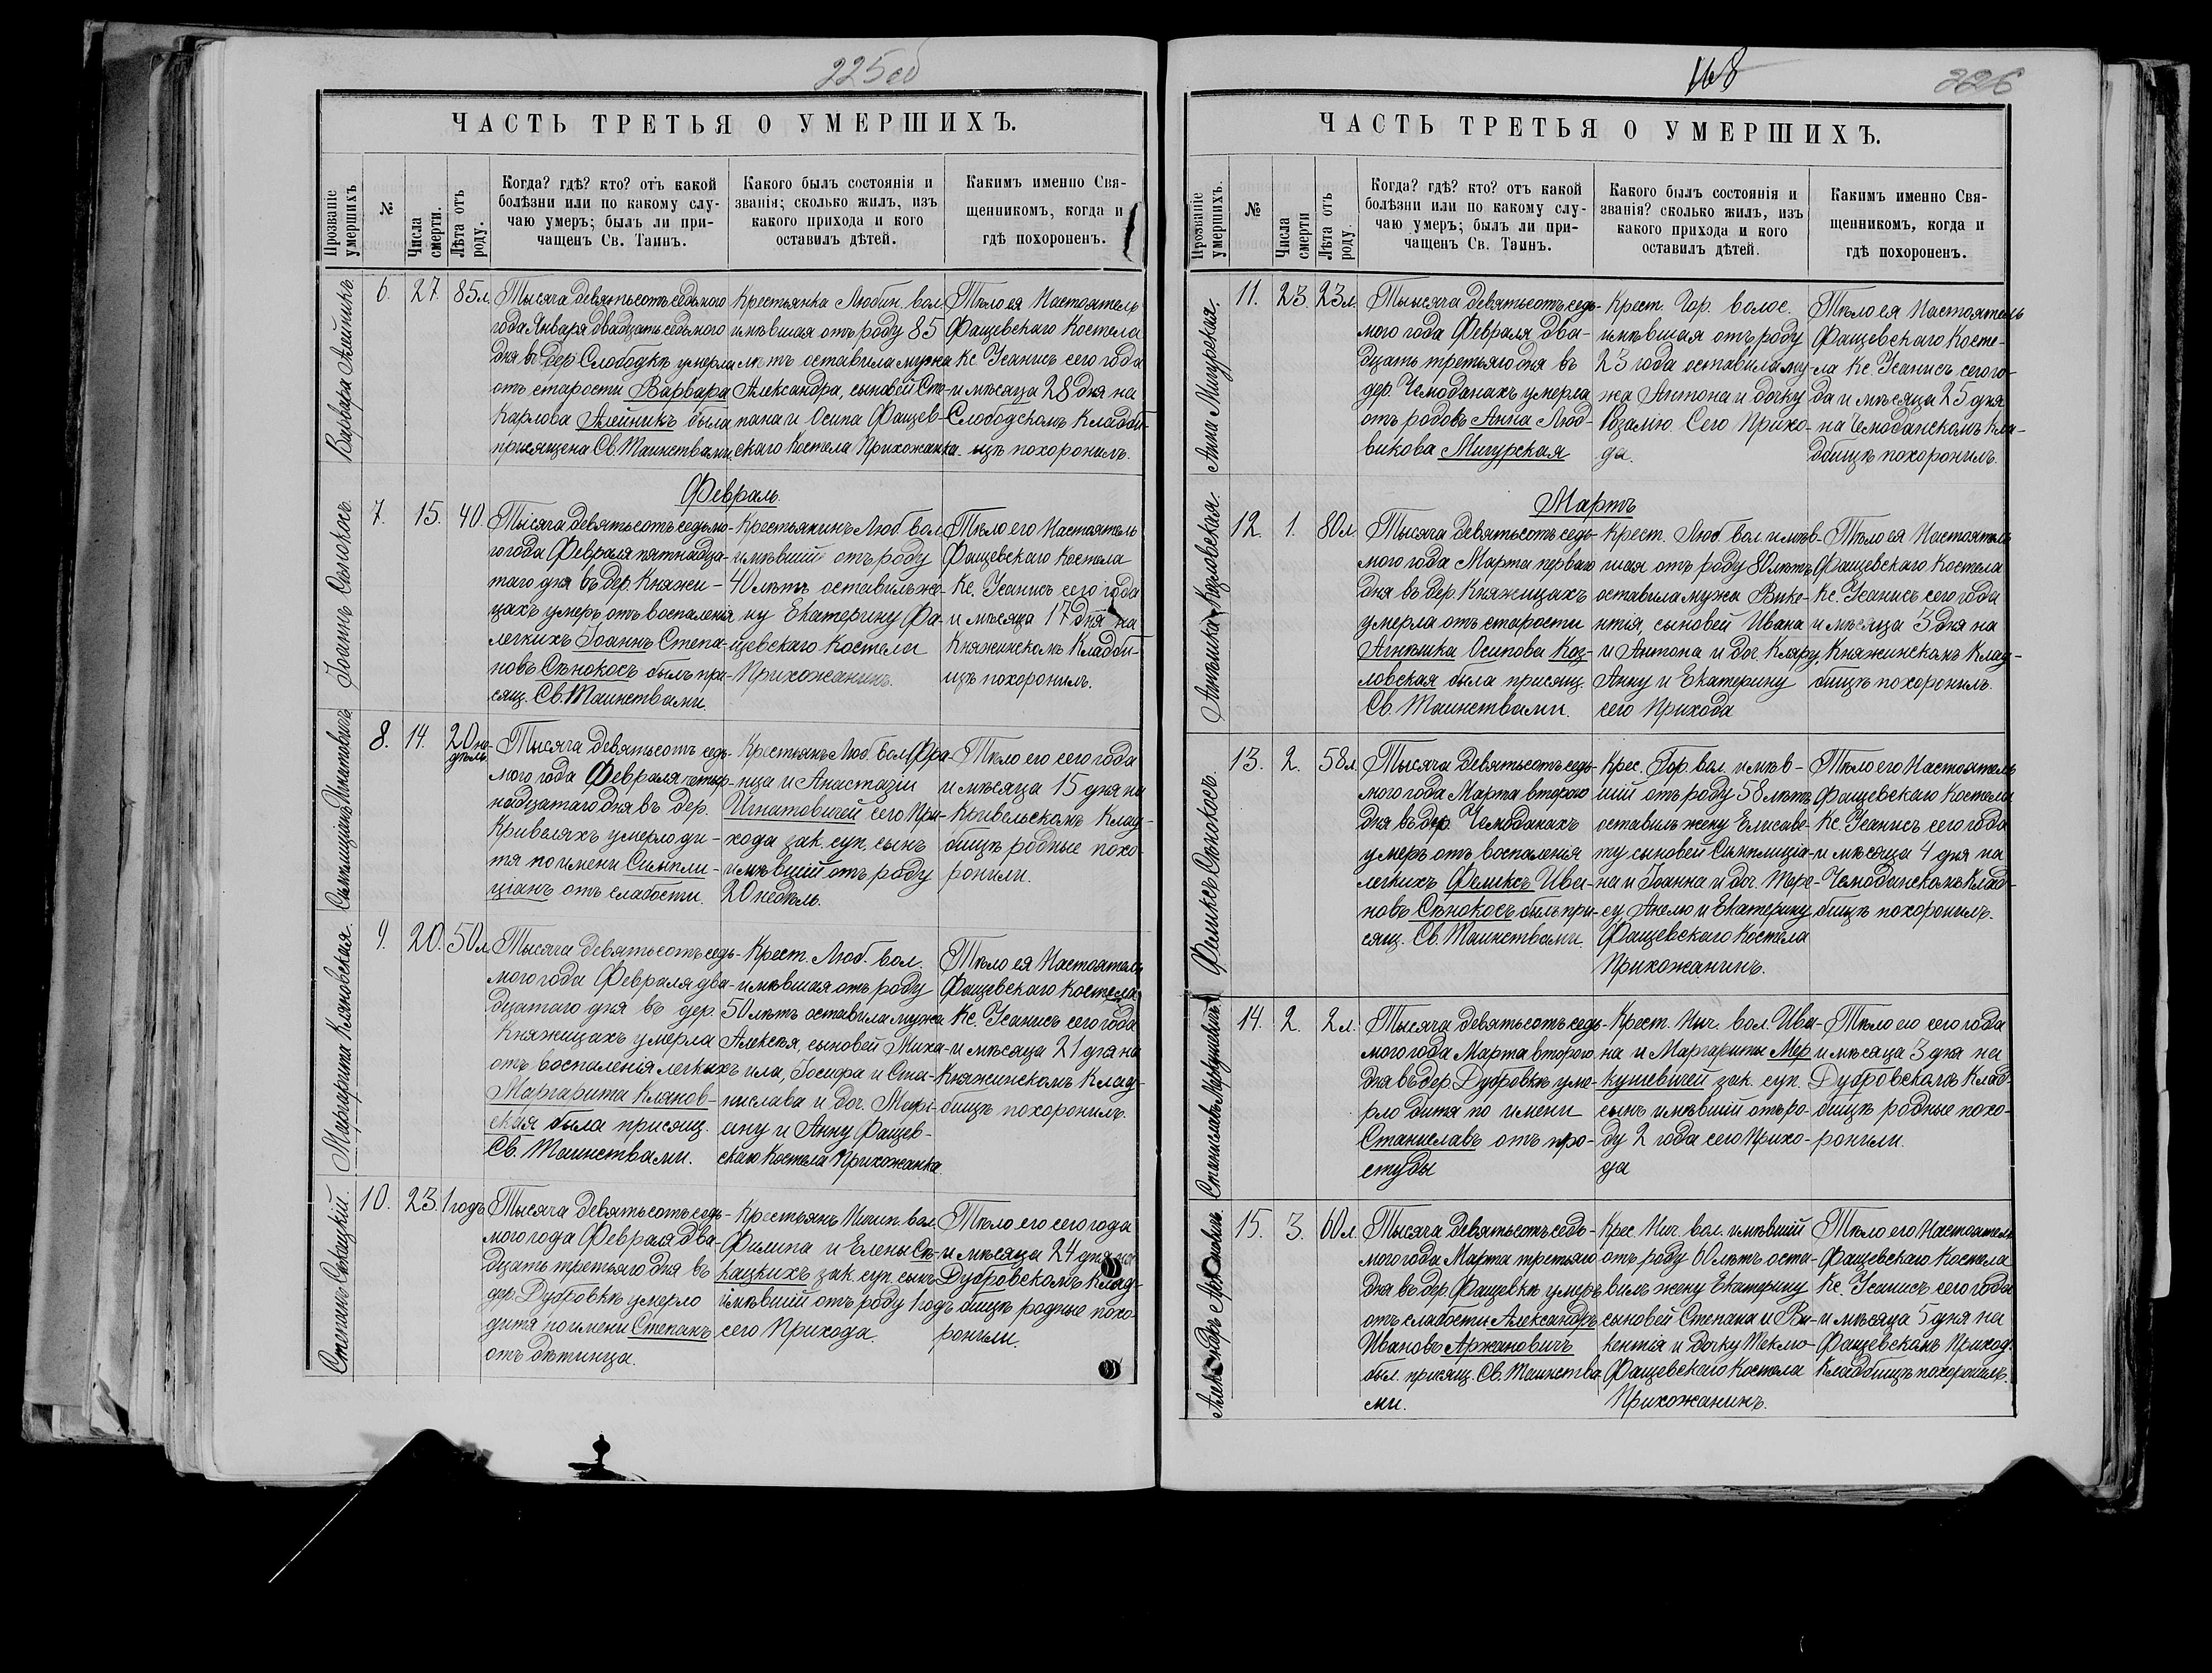 225об
ЧАСТЬ ТРЕТЬЯ О УМЕРШИХЪ.
Прозваніе умершихъ
№
Числа смерти.
Лѣта отъ роду.
Когда? гдѣ? кто? отъ какой
болѣзни или по какому слу-
чаю умеръ; былъ ли при-
чащенъ Св. Таинъ.
Какого былъ состоянія и
званія; сколько жилъ, изъ
какого прихода и кого
оставилъ дѣтей.
Какимъ именно Свя-
щенникомъ, когда и
гдѣ похороненъ.
Варвара Алейникъ
6.
27.
85л.
Тысяча девятьсотъ седьмого
года Января двадцать седьмого
дня въ дер. Слободкѣ умерла
отъ старости Варвара
Карлова Алейникъ была
присящена Св. Таинствами.
Крестьянка Любин. вол.
имѣвшая отъ роду 85
лѣтъ оставила мужа
Александра, сыновей Сте-
пана и Осипа Фащев-
скаго Костела Прихожанка.
Тѣло ея Настоятель
Фащевскаго Костела
Кс. Усанисъ сего года
и мѣсяца 28 дня на
Слободскомъ Кладби-
щѣ похоронилъ.
Февраль.
Іоаннъ Сѣнокосъ.
7.
15.
40.
Тысяча девятьсотъ седьмо-
го года Февраля пятнадца-
таго дня въ дер. Княжи-
цахъ умеръ отъ воспаленія
легкихъ Іоаннъ Степа-
новъ Сѣнокосъ былъ при-
сящ. Св. Таинствами.
Крестьянинъ Люб. вол.
имѣвшій отъ роду
40 лѣтъ оставилъ же-
ну Екатерину Фа-
щевскаго Костела
Прихожанинъ.
Тѣло его Настоятель
Фащевскаго Костела
Кс. Усанисъ сего года
и мѣсяца 17 дня на
Княжинскомъ Кладби-
щѣ похоронилъ.
Симплиціанъ Игнатовичъ
8.
14.
20 не-
дѣль.
Тысяча девятьсотъ седь-
мого года Февраля четыр-
надцатаго дня въ дер.
Кривеляхъ умерло ди-
тя по имени Симпли-
ціанъ отъ слабости.
Крестьянъ Люб. вол. Фра-
нца и Анастазіи
Игнатовичей сего При-
хода зак. суп. сынъ
имѣвшій отъ роду
20 недѣль.
Тѣло его сего года
и мѣсяца 15 дня на
Кривельскомъ Клад-
бищѣ родные похо-
ронили.
Маргарита Кляновская.
9.
20.
50л.
Тысяча девятьсотъ седь-
мого года Февраля два-
дцатаго дня въ дер.
Княжицахъ умерла
отъ воспаленія легкихъ
Маргарита Клянов-
ская была присящ.
Св. Таинствами.
Крест. Люб. вол.
имѣвшая отъ роду
50 лѣтъ оставила мужа
Алексѣя, сыновей Миха-
ила, Іосифа и Ста-
нислава и доч. Марі-
анну и Анну Фащев-
скаго Костела Прихожанка.
Тѣло ея Настоятель
Фащевскаго Костела
Кс. Усанисъ сего года
и мѣсяца 21 дня на
Княжинскомъ Клад-
бищѣ похоронилъ.
Степанъ Сѣкацкій.
10.
23.
1 годъ
Тысяча девятьсотъ седь-
мого года Февраля два-
дцать третьяго дня въ
дер. Дубровкѣ умерло
дитя по имени Степанъ
отъ дѣтинца.
Крестьянъ Ничип. вол.
Филипа и Елены Сѣ-
кацкихъ зак. суп. сынъ
имѣвшій отъ роду 1 годъ
сего Прихода.
Тѣло его сего года
и мѣсяца 24 дня на
Дубровскомъ Клад-
бищѣ родные похо-
ронили.
168
226
ЧАСТЬ ТРЕТЬЯ О УМЕРШИХЪ.
Прозваніе умершихъ.
№
Числа смерти
Лѣта отъ роду.
Когда? гдѣ? кто? отъ какой
болѣзни или по какому слу-
чаю умеръ; былъ ли при-
чащенъ Св. Таинъ.
Какого былъ состоянія и
званія? сколько жилъ, изъ
какого прихода и кого
оставилъ дѣтей.
Какимъ именно Свя-
щенникомъ, когда и
гдѣ похороненъ.
Анна Мигурская.
11.
23.
23л.
Тысяча девятьсотъ седь-
мого года Февраля два-
дцать третьяго дня въ
дер. Чемоданахъ умерла
отъ родовъ Анна Люд-
викова Мигурская
Крест. Гор. волос.
имѣвшая отъ роду
23 года оставила му-
жа Антона и дочку
Розалію. Сего Прихо-
да.
Тѣло ея Настоятель
Фащевскаго Косте-
ла Кс. Усанисъ сего го-
да и мѣсяца 25 дня
на Чемоданскомъ Кла-
дбищѣ похоронилъ.
Мартъ
Агнѣшка Козловская.
12.
1.
80л
Тысяча девятьсотъ седь-
мого года Марта перваго
дня въ дер. Княжицахъ
умерла отъ старости
Агнѣшка Осипова Коз-
ловская была присящ.
Св. Таинствами.
Крест. Люб. вол имѣв-
шая отъ роду 80 лѣтъ
оставила мужа Вике-
нтія, сыновей Ивана
и Антона и доч. Кляру,
Анну и Екатерину
сего Прихода
Тѣло ея Настоятель
Фащевскаго Костела
Кс. Усанисъ сего года
и мѣсяца 3 дня на
Княжинскомъ Клад-
бищѣ похоронилъ.
Феликсъ Сѣнокосъ.
13.
2.
58л
Тысяча девятьсотъ седь-
мого года Марта второго
дня въ дер. Чемоданахъ
умеръ отъ воспаленія
легкихъ Феликсъ Ива-
новъ Сѣнокосъ былъ при-
сящ. Св. Таинствами.
Крес. Гор. вол. имѣв-
шій отъ роду 58 лѣтъ
оставилъ жену Елисаве-
ту сыновей Симплиціа-
на и Іоанна и доч. Тере-
су, Анелю и Екатерину
Фащевскаго Костела
Прихожанинъ.
Тѣло его Настоятель
Фащевскаго Костела
Кс. Усанисъ сего года
и мѣсяца 4 дня на
Чемоданскомъ Клад-
бищѣ похоронилъ.
Станиславъ Меркушевичъ
14.
2.
2л.
Тысяча девятьсотъ седь-
мого года Марта второго
дня въ дер. Дубровкѣ уме-
рло дитя по имени
Станиславъ отъ про-
студы
Крест. Нич. вол. Ива-
на и Маргариты Мер
кушевичей зак. суп.
сынъ имѣвшій отъ ро-
ду 2 года сего Прихо-
да
Тѣло его сего года
и мѣсяца 3 дня на
Дубровскомъ Клад-
бищѣ родные похо-
ронили.
Александръ Аржановичъ.
15.
3.
60л.
Тысяча девятьсотъ седь-
мого года Марта третьяго
дня въ дер. Фащевкѣ умеръ
отъ слабости Александръ
Ивановъ Аржановичъ
был. присящ. Св. Таинства
ми.
Крес. Нич. вол. имѣвшій
отъ роду 60 лѣтъ оста-
вилъ жену Екатерину
сыновей Степана и Ви-
кентія и дочку Теклю
Фащевскаго Костела
Прихожанинъ.
Тѣло его Настоятель
Фащевскаго Костела
Кс. Усанисъ сего года
и мѣсяца 5 дня на
Фащевскомъ Приход.
Кладбищѣ похоронилъ.